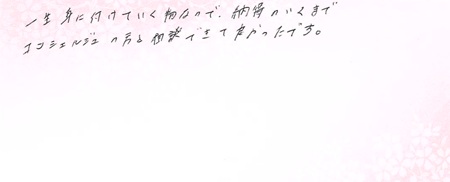 一生身に付けていく物なので、納得のいくまで
コンシェルジュの方と相談できて良かったです。